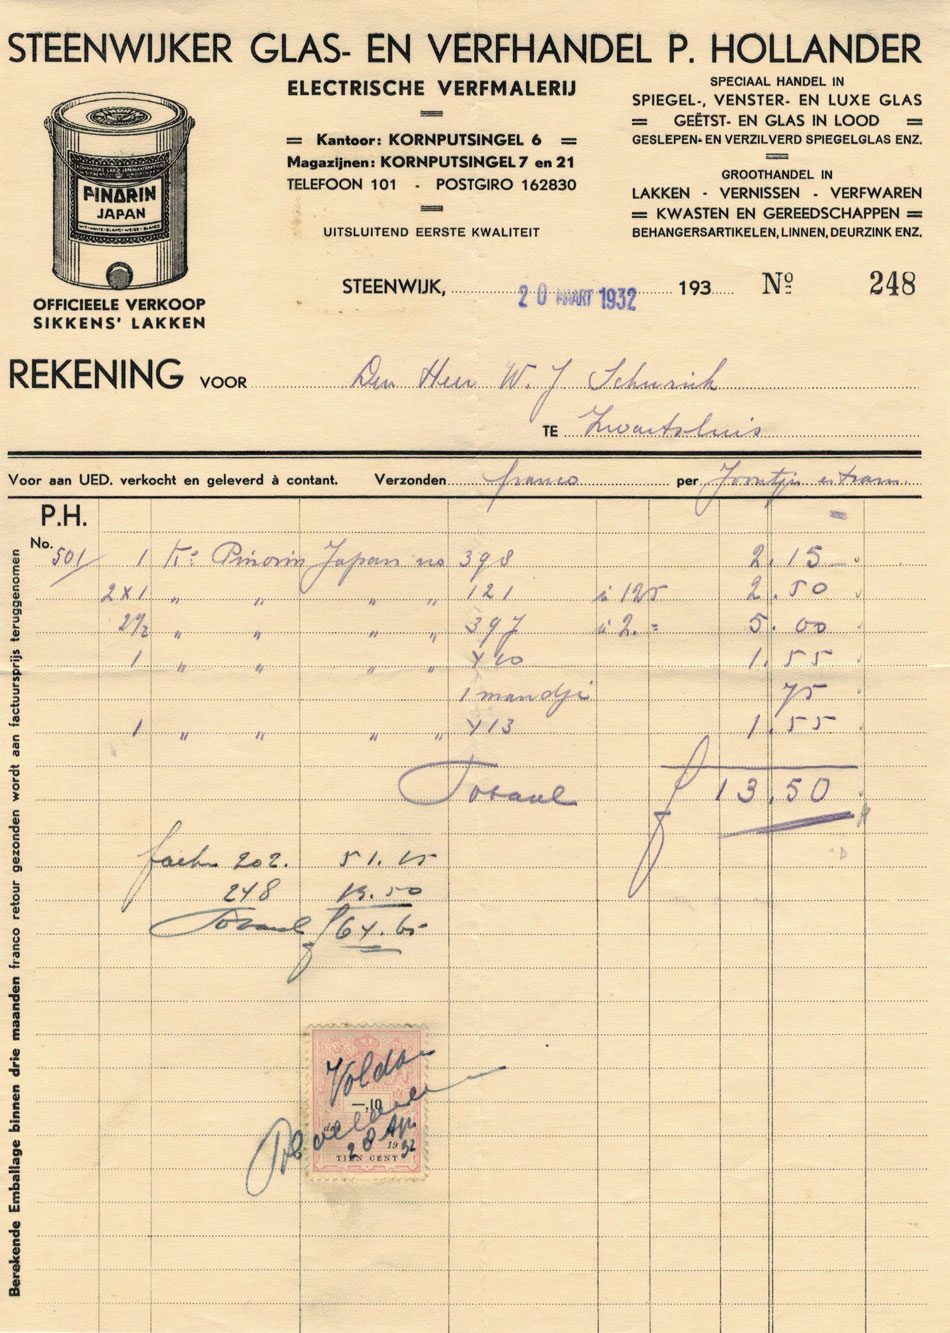 STEENWIJKER GLAS- EN VERFHANDEL P. HOLLANDER
PINORIN
JAPAN
OFFICIEELE VERKOOP
SIKKENS' LAKKEN
ELECTRISCHE VERFMALERIJ
Kantoor: KORNPUTSINGEL 6
Magazijnen: KORNPUTSINGEL 7 en 21
TELEFOON 101 - POSTGIRO 162830
UITSLUITEND EERSTE KWALITEIT
SPECIAAL HANDEL IN
SPIEGEL-, VENSTER- EN LUXE GLAS
GEËTST- EN GLAS IN LOOD
GESLEPEN- EN VERZILVERD SPIEGELGLAS ENZ.
GROOTHANDEL IN
LAKKEN - VERNISSEN - VERFWAREN
KWASTEN EN GEREEDSCHAPPEN
BEHANGERSARTIKELEN, LINNEN, DEURZINK ENZ.
STEENWIJK, 20 MAART 1932 193 No 248
REKENING VOOR Den Heer W. J. Schurink
TE Zwartsluis
Voor aan UED. verkocht en geleverd à contant. Verzonden franco per tram.
P.H.
No. 501/ 1 Ko Pinorin Japan no 398 2.15
2x1 " " " " 121 à 125 2.50
2½ " " " " 397 à 2.= 5.00
1 " " " " 410 1.55
1 mandje 75
1 " " " " 413 1.55
Totaal f 13.50
202. 51.15
248 13.50
Totaal f 64.65
Voldaan
-,10
P Hollander
28 Apr.
19 32
TIEN CENT
Berekende Emballage binnen drie maanden franco retour gezonden wordt aan factuursprijs teruggenomen